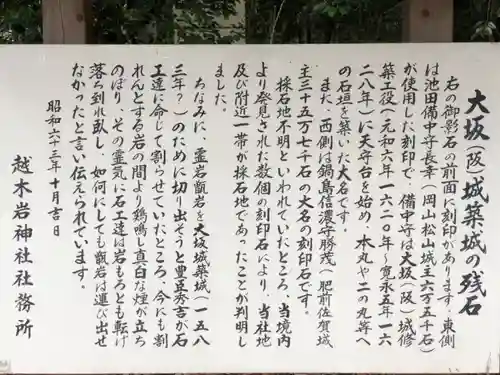 大坂(阪)城築城の残石
右の御影石の前面に刻印があります。東側
は池田備中守長幸(岡山松山城主六万五千石)
が使用した刻印で、備中守は大坂(阪)城修
築工役(元和六年一六二〇年〜寛永五年一六
二八年)に天守台を始め、本丸や二の丸等へ
の石垣を築いた大名です。
また、西側は鍋島信濃守勝茂(肥前佐賀城
主三十五万七千石の大名の刻印石です。
採石地不明といわれていたところ、当境内
より発見された数個の刻印石により、当社地
及び附近一帯が採石地であったことが判明し
ました。
ちなみに、霊岩甑岩を大坂城築城(一五八
三年?)のために切り出そうと豊臣秀吉が石
工達に命じて割らせていたところ、今にも割
れんとする岩の間より鶏鳴し真白な煙が立ち
のぼり、その霊気に石工達は岩もろとも転げ
落ち到れ臥し、如何にしても甑岩は運び出せ
なかったと言い伝えられています。
昭和六十三年十月吉日
越木岩神社社務所